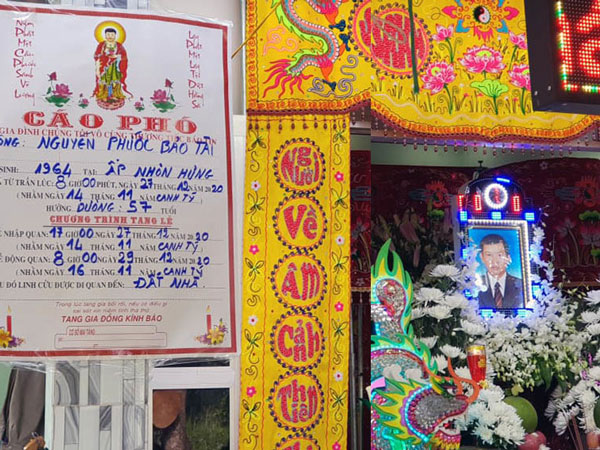 Nam Mô
Phật
Một
Câu
Phước
Sanh
Vô
Lượng
Lạy
Phật
Một
Lạy
Tội
Diệt
Hằng
Sa
CÁO PHÓ
GIA ĐÌNH CHÚNG TÔI VÔ CÙNG THƯƠNG TIẾC BÁO TIN
ÔNG: NGUYỄN PHƯỚC BẢO TÀI
SINH: 1964 TẠI: ẤP NHƠN HƯNG
TỪ TRẦN LÚC: 8 GIỜ 00 PHÚT, NGÀY 27 THÁNG 12 NĂM 2020
(NHẰM NGÀY 14 THÁNG 11 NĂM CANH TÝ)
HƯỞNG DƯƠNG: 57 TUỔI
CHƯƠNG TRÌNH TANG LỄ
NHẬP QUAN: 17 GIỜ 00 NGÀY 27 THÁNG 12 NĂM 2020
(NHẰM NGÀY 14 THÁNG 11 NĂM CANH TÝ)
ĐỘNG QUAN: 8 GIỜ 00 NGÀY 29 THÁNG 12 NĂM 2020
(NHẰM NGÀY 16 THÁNG 11 NĂM CANH TÝ
ĐÓ LINH CỮU ĐƯỢC DI QUAN ĐẾN: ĐẤT NHÀ
Trong lúc tang gia bối rối, nếu có điều gì
sai sót xin niệm tình tha thứ.
TANG GIA ĐỒNG KÍNH BÁO
CƠ SỞ MAI TÁNG
Người
Về
Âm
Cảnh